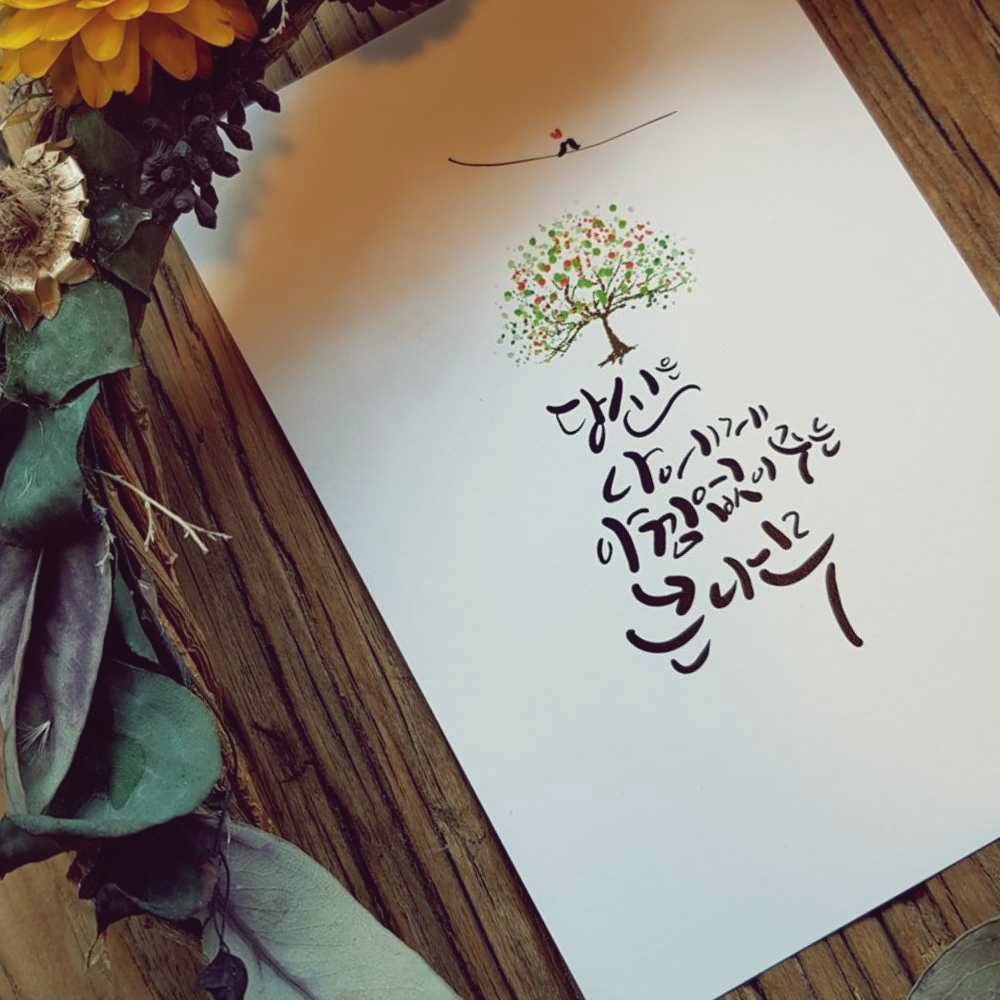 당신은
나에게
아낌없이 주는
큰 나무